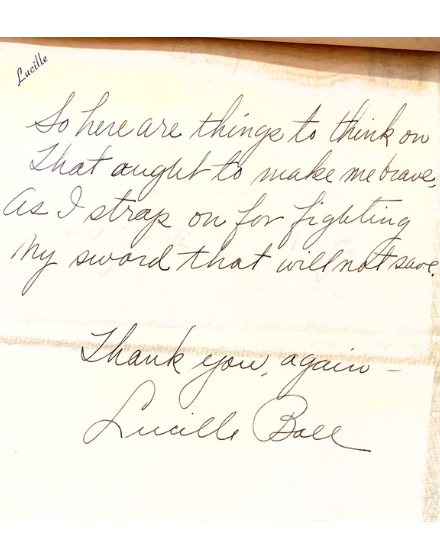 Lucille
So here are things to think on
That ought to make me brave,
As I strap on for fighting
My sword that will not save.
Thank you, again -
Lucille Ball